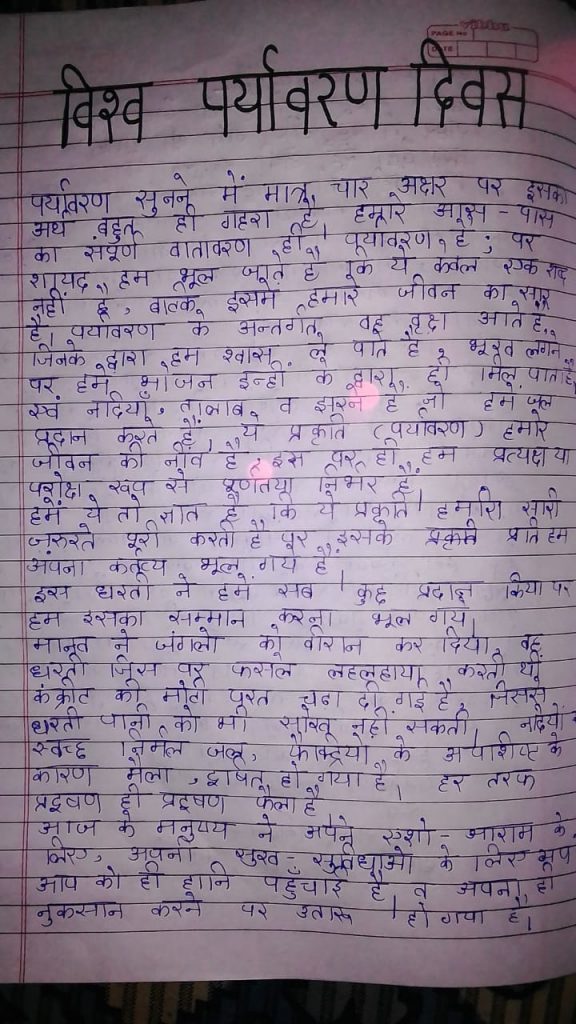 vibha
PAGE NO
DATE
विश्व पर्यावरण दिवस
पर्यावरण सुनने में मात्र चार अक्षर पर इसका
अर्थ बहुत ही गहरा है हमारे आस - पास
का संपूर्ण वातावरण ही पर्यावरण है ; पर
शायद हम भूल जाते है कि ये केवल एक शब्द
नहीं है, बल्कि इसमें हमारे जीवन का सार
है। पर्यावरण के अन्तर्गत वह वृक्ष आते है
जिनके द्वारा हम श्वास ले पाते है, भूख लगने
पर हमे भोजन इन्ही के द्वारा ही मिल पाता है
एवं नदिया, तालाब व झरने है जो हमे जल
प्रदान करते है, ये प्रकृति (पर्यावरण) हमारे
जीवन की नीव है, इस पर ही हम प्रत्यक्ष या
परोक्ष रूप से पूर्णतया निर्भर है
हमे ये तो ज्ञात है कि ये प्रकृति हमारी सारी
जरुरते पूरी करती है पर इसके प्रकृति प्रति हम
अपना कर्तव्य भूल गये है।
इस धरती ने हमे सब कुछ प्रदान किया पर
हम इसका सम्मान करना भूल गये।
मानव ने जंगलो को वीरान कर दिया, वह
धरती जिस पर फसल लहलहाया करती थी
कंक्रीट की मोटी परत चढा दी गई है, जिससे
धरती पानी को भी सोख नही सकती, नदियों का
स्वच्छ निर्मल जल, फैक्ट्रियो के अपशिष्ट के
कारण मैला, दूषित हो गया है। हर तरफ
प्रदूषण ही प्रदूषण फैला है
आज के मनुष्य ने अपने एशो - आराम के
लिए, अपनी सुख - सुविधाओ के लिए अपने
आप को ही हानि पहुचाई है व अपना ही
नुकसान करने पर उतारू हो गया है।